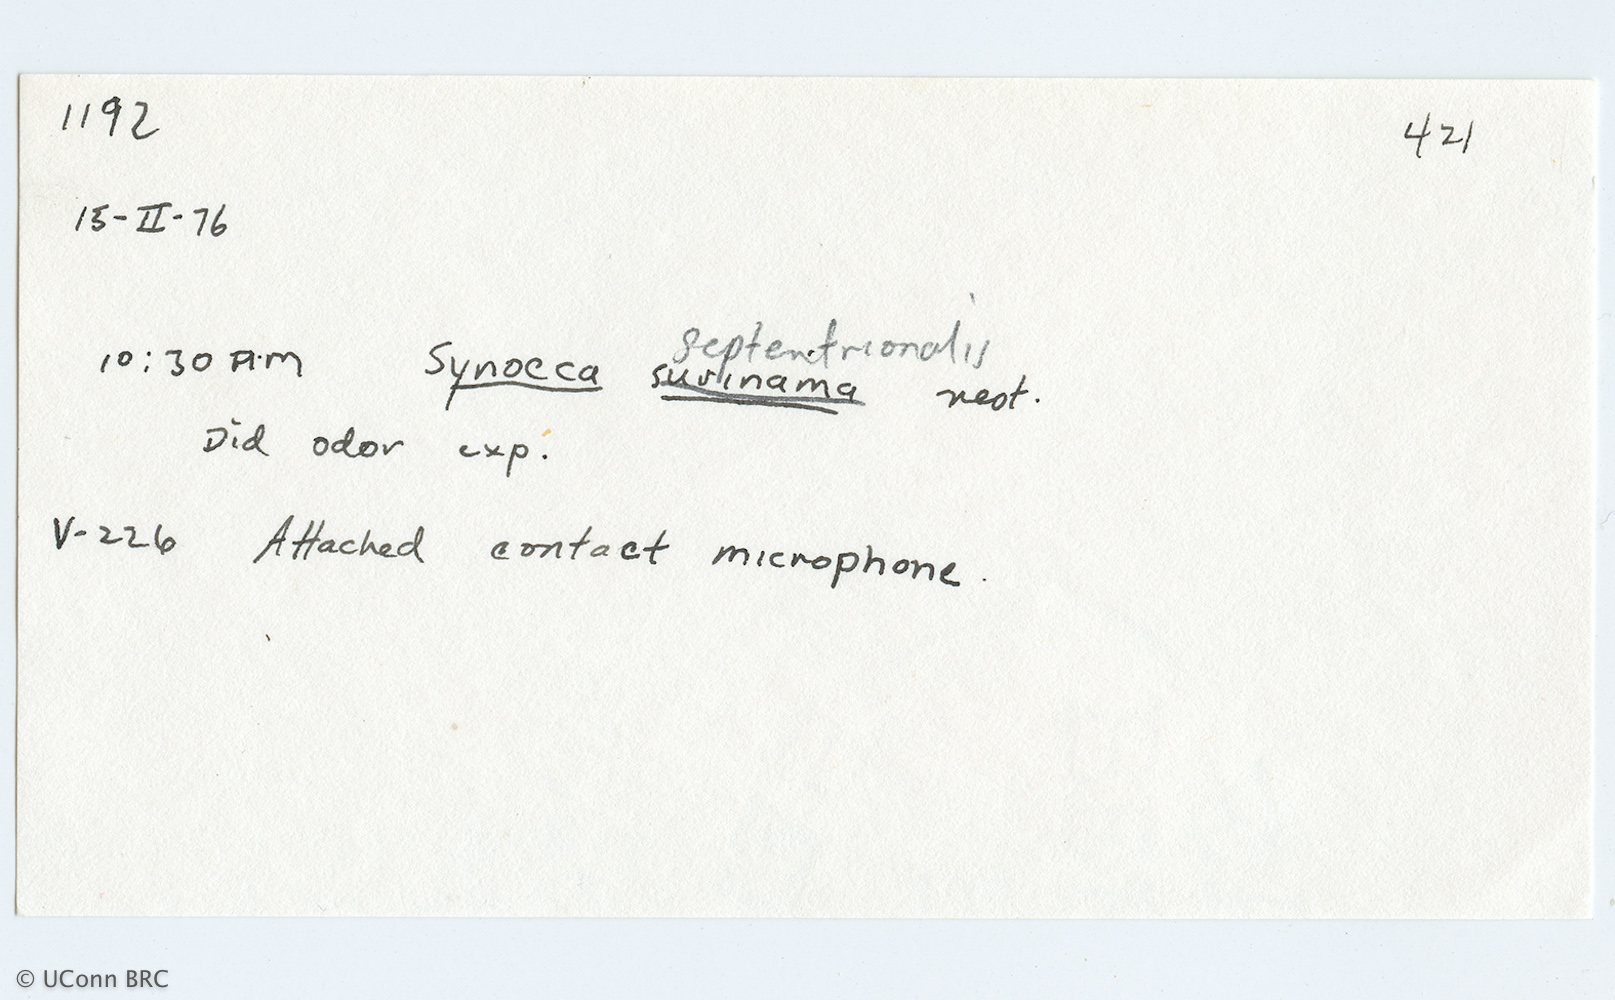 1192
421
15-II-76
septentrionalis
10:30 AM Synoeca surinama nest.
Did odor exp.
V-226 Attached contact microphone.
© UConn BRC